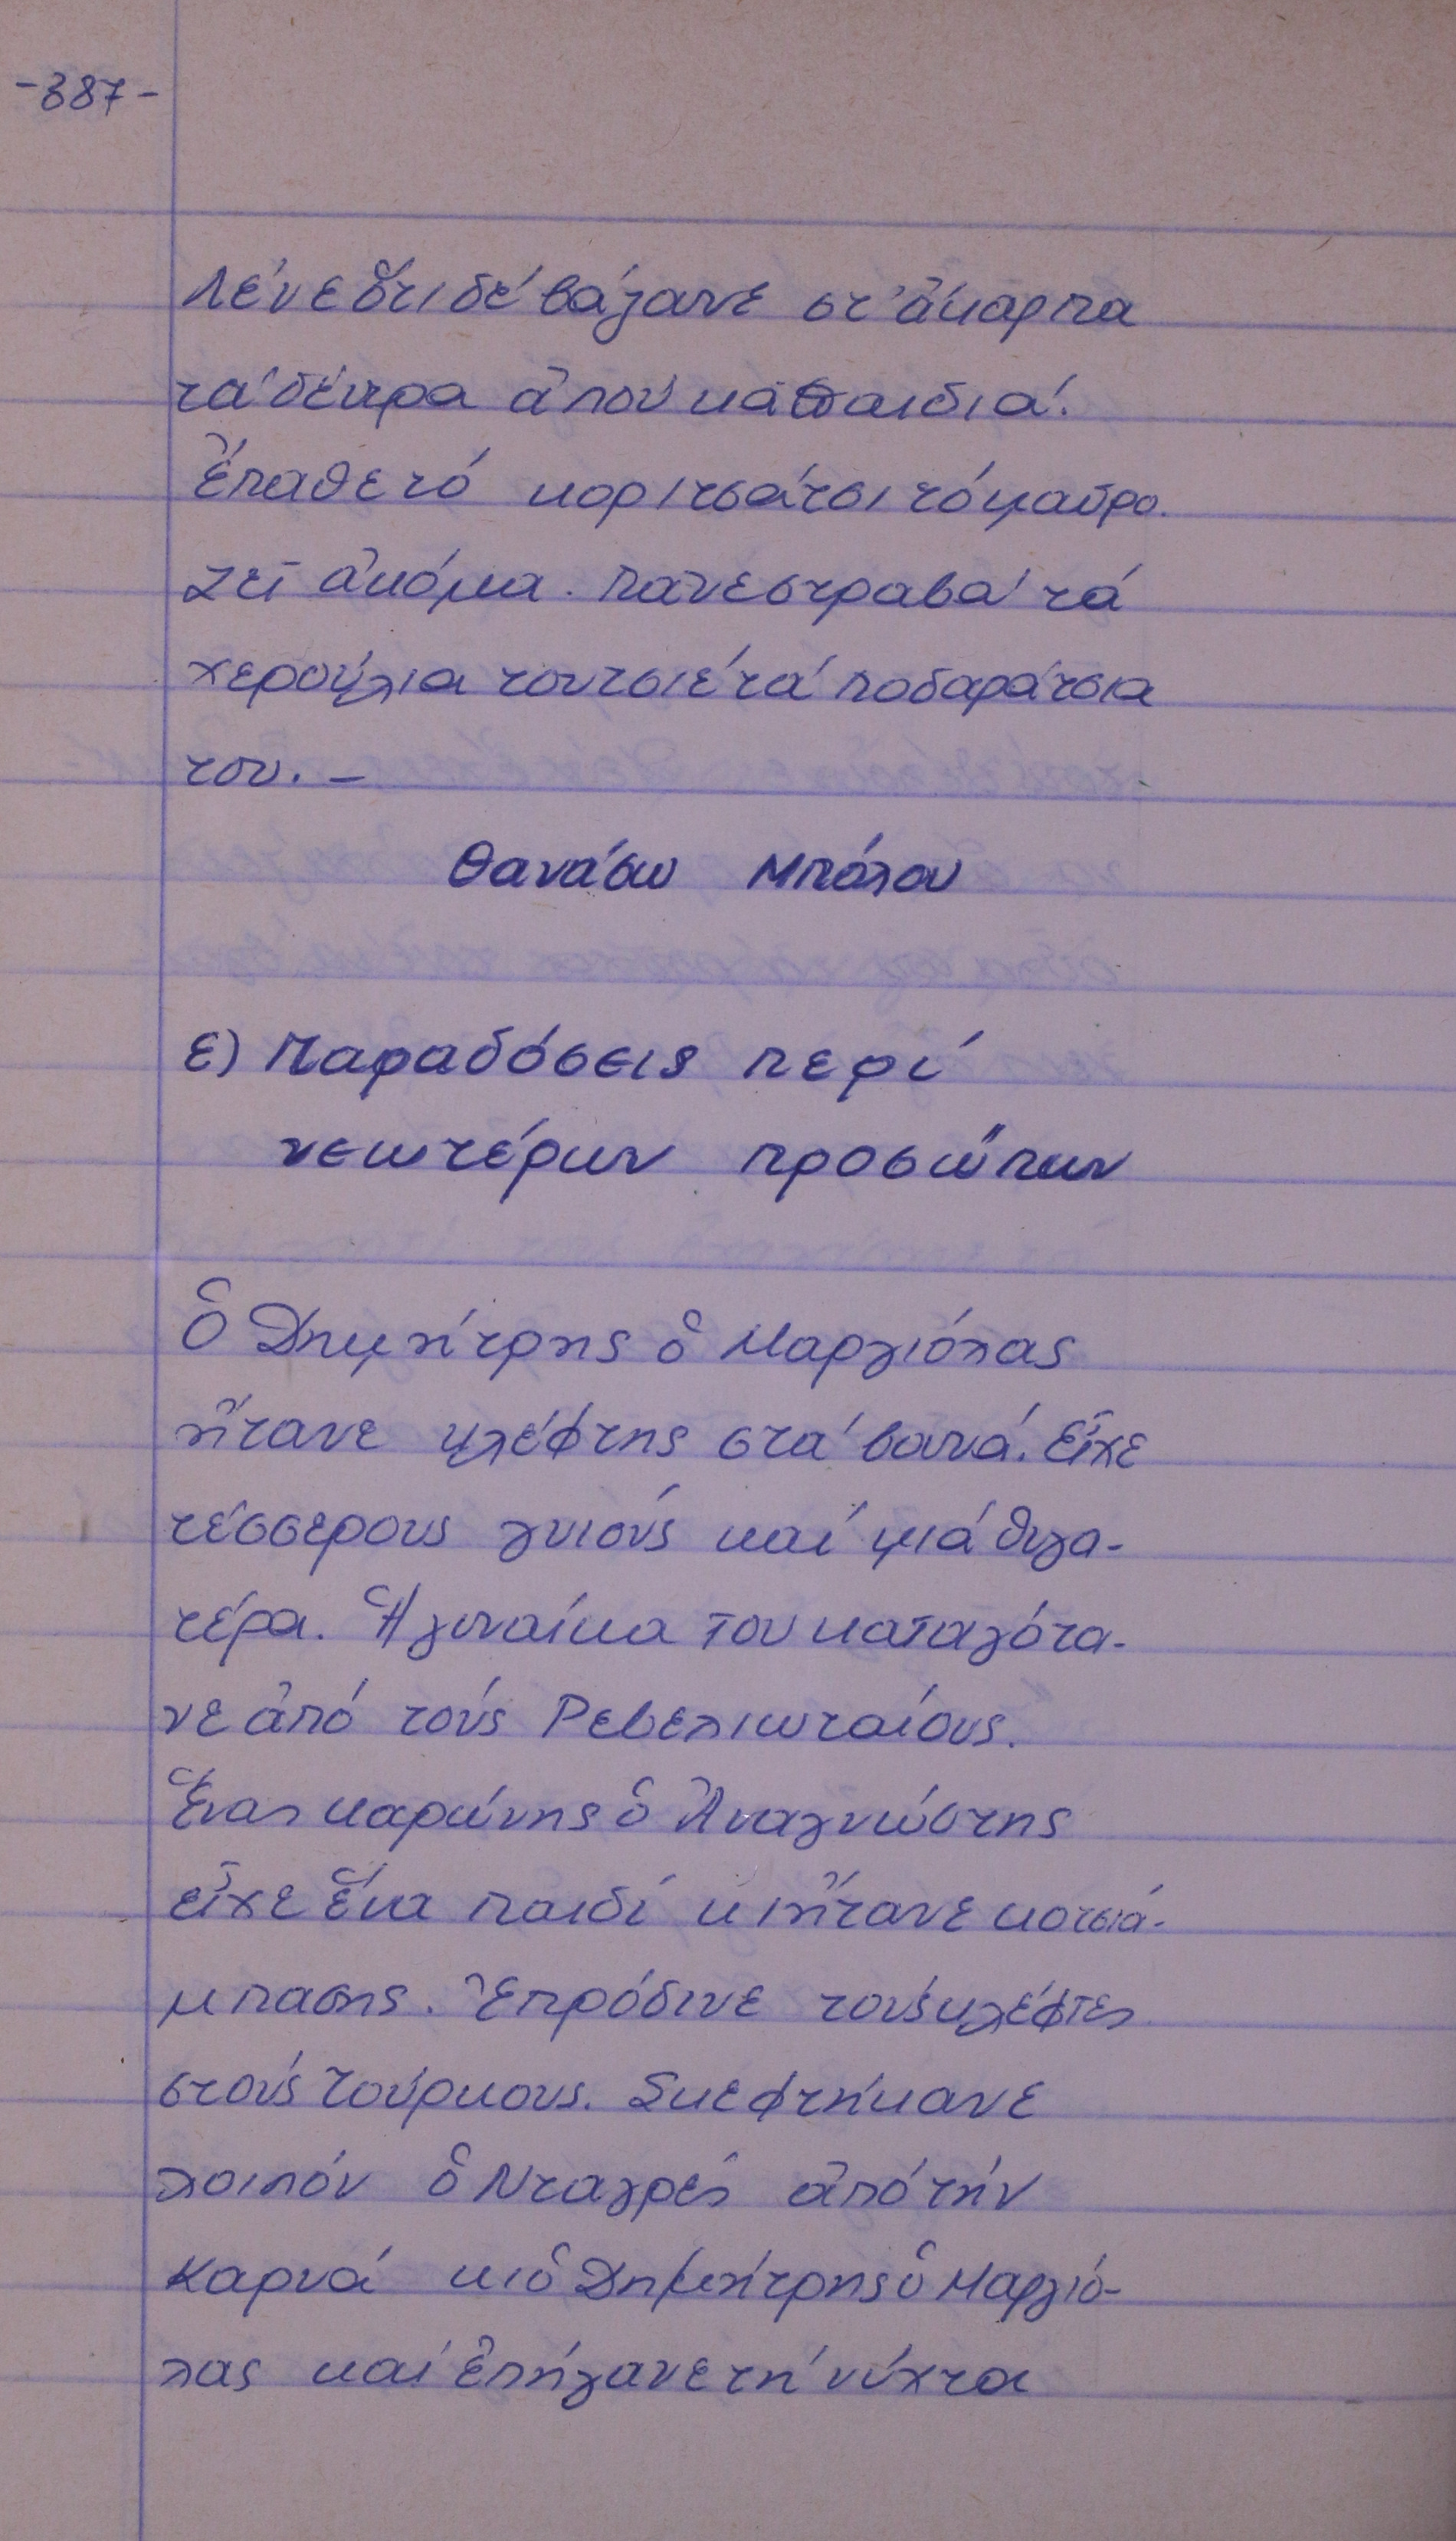 -387-
Λένε ὅτι δέ βάζανε στ' ἄκαρπα
τά δέντρα ἀπού κά παιδιά.
Ἔπαθε τό κοριτσάτσι τό μαῦρο.
Ζεῖ ἀκόμα. Πᾶνε στραβά τά
χερούλια του τσιέ τά ποδαράτσια
του. –
Θανάσω Μπόλου
ε) Παραδόσεις περί
νεωτέρων προσώπων
Ὁ Δημήτρης ὁ Μαργιόλας
ἤτανε κλέφτης στά βουνά. Εἶχε
τέσσερους γυιούς καί μιά θυγα-
τέρα. Ἡ γυναίκα του καταγότα-
νε ἀπό τούς Ρεβελιωταίους.
Ἕνας καρώνης ὁ Ἀναγνώστης
εἶχε ἕνα παιδί κι ἤτανε κοτσιά-
μπασης. Ἐπρόδινε τούς κλέφτες
στούς τούρκους. Σκεφτήκανε
λοιπόν ὁ Νταγρές ἀπό τήν
Καρυά κι ὁ Δημήτρης ὁ Μαργιό-
λας καί ἐπήγανε τή νύχτα